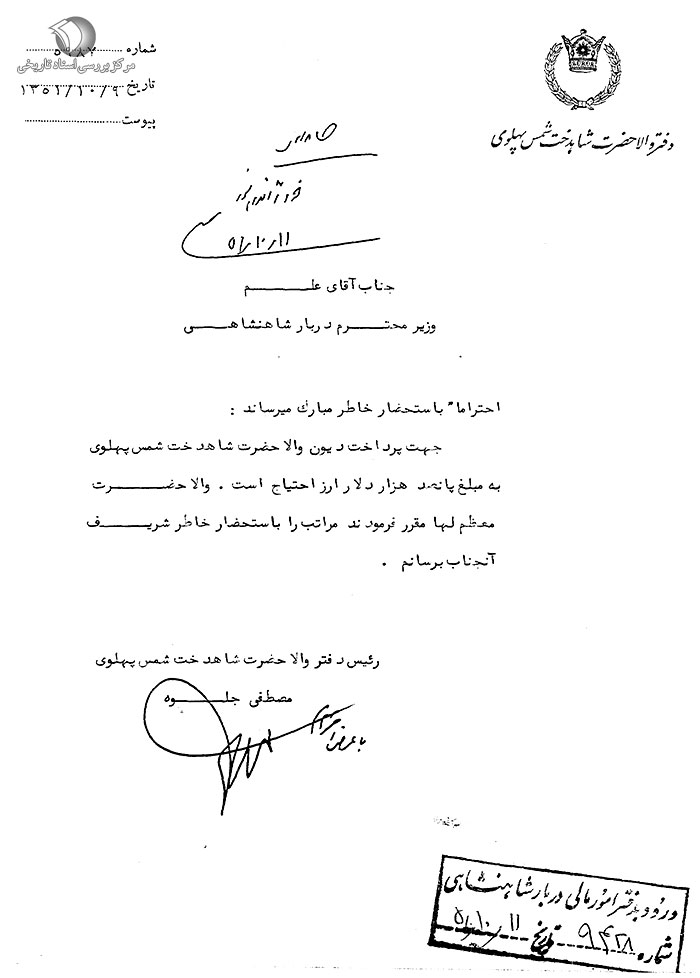 شماره ۵۹۸۴
مرکز بررسی اسناد تاریخی
تاریخ ۱۳۵۱/۱۰/۹
پیوست
دفتر والاحضرت شاهدخت شمس پهلوی
۵۱/۱۰/۱۱
جناب آقای علـــــم
وزیر محتـــــرم دربار شاهنشاهـــــی
احتراماً باستحضار خاطر مبارك میرساند :
جهت پرداخت دیون والا حضرت شاهدخت شمس پهلوی
به مبلغ پانصد هزار دلار ارز احتیاج است . والا حضـــــرت
معظم لها مقرر فرمودند مراتب را باستحضار خاطر شریـــــف
آنجناب برسانم .
رئیس دفتر والا حضرت شاهدخت شمس پهلوی
مصطفی جلـــــوه
با عرض احترام
ورود بدفتر امور مالی دربار شاهنشاهی
شماره ۹۴۲۸ تاریخ ۵۱/۱۰/۱۱